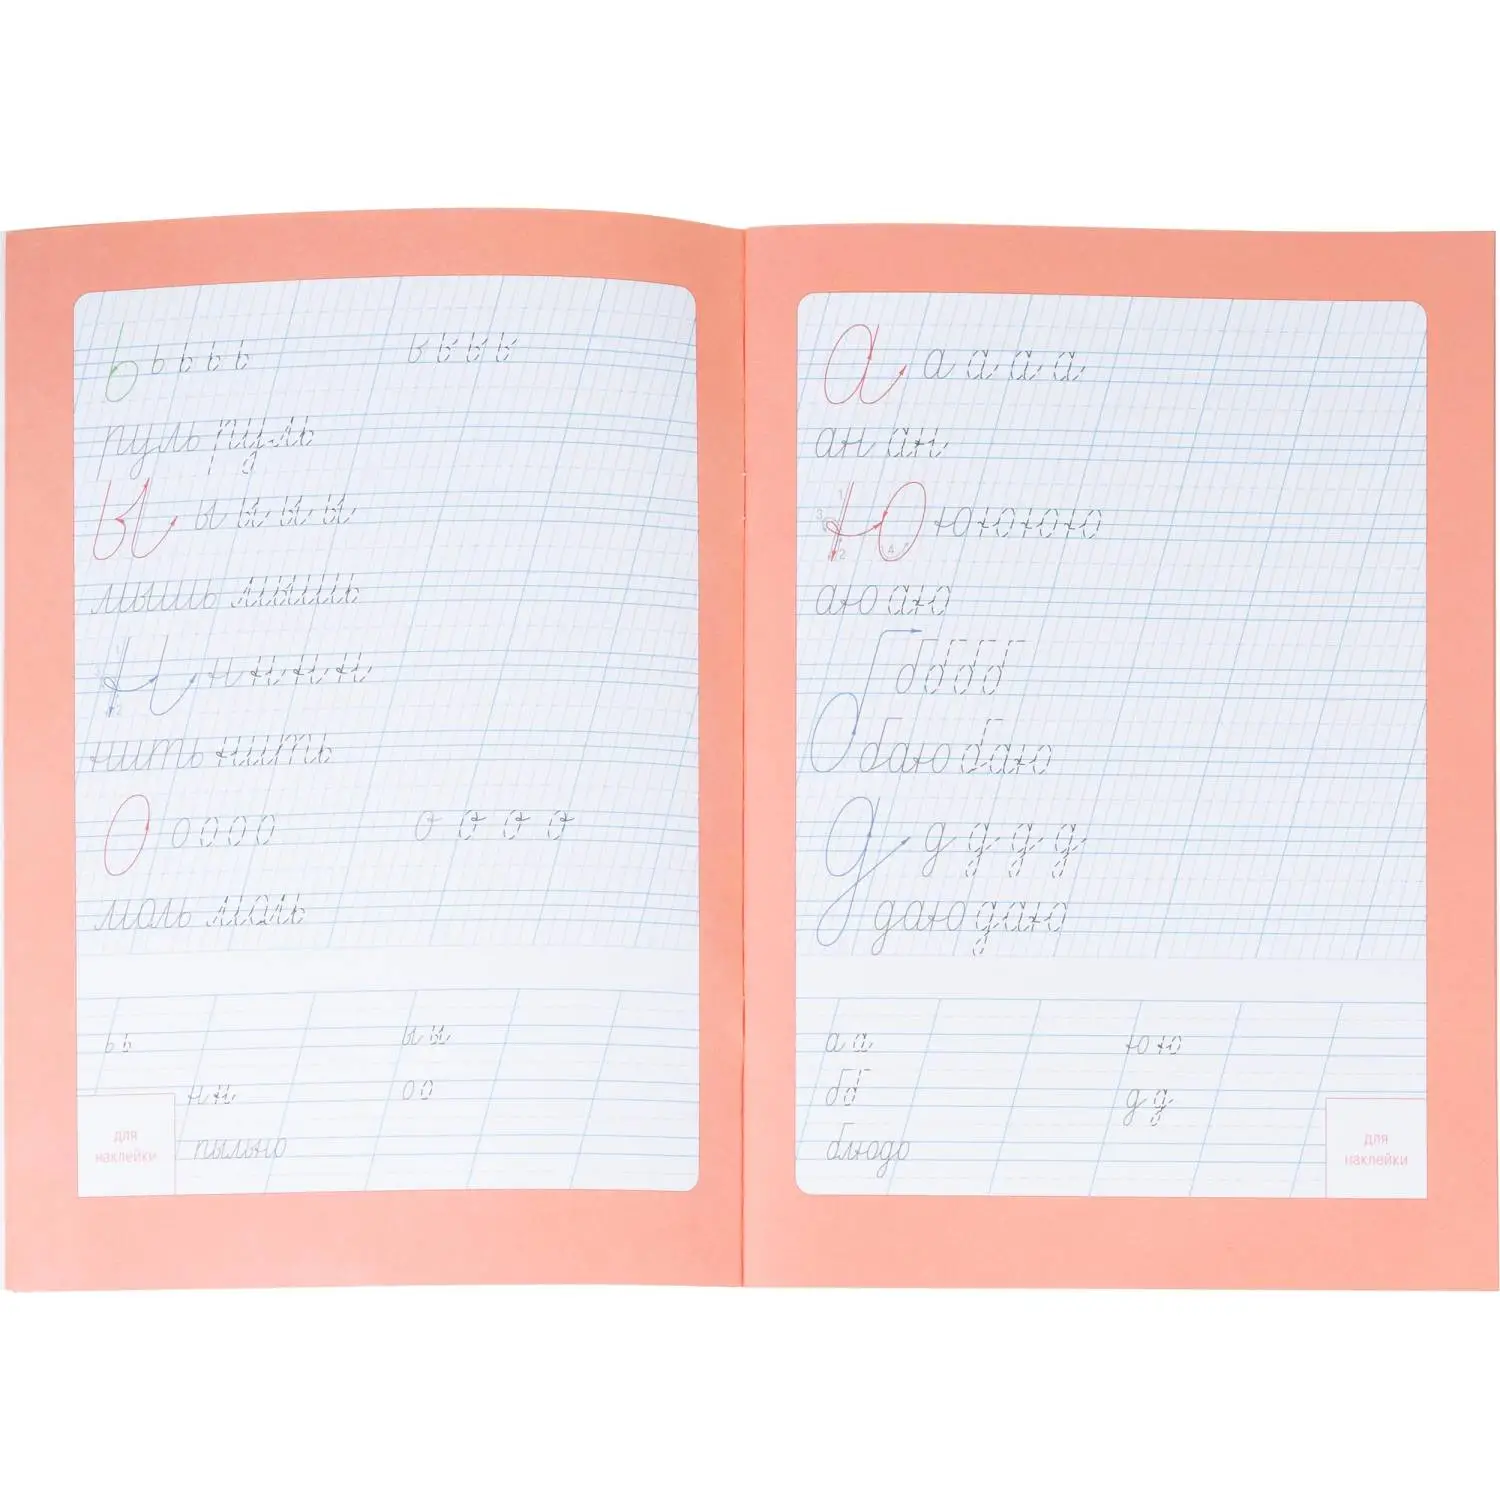 ь ь ь ь ь ь ь ь ь
пуль пуль
ы ы ы ы ы
мышь мышь
н н н н н
нить нить
о о о о о о о о о
моль моль
ь ь ы ы
н н о о
для
наклейки
пыльно
а а а а а
ан ан
1 3 2 4
ю ю ю ю ю
аю аю
б б б б б
баю баю
д д д д д
даю даю
а а ю ю
б б д д
для
наклейки
блюдо